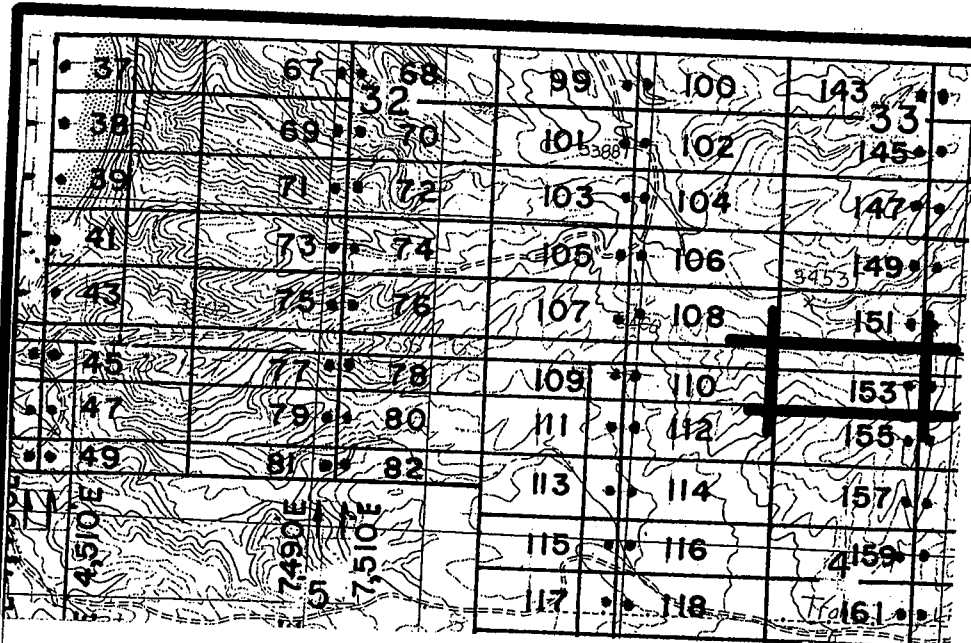 37 67 68 99 100 143
32 33
38 69 70 101 5388 102 145
39 71 72 103 104 147
41 73 74 105 106 149
5453
43 75 76 107 108 151
45 77 78 109 110 153
47 79 80 111 112 155
49 81 82 113 114 157
4,510'E 7,490'E 7,510'E
115 116 4 159
5 117 118 161